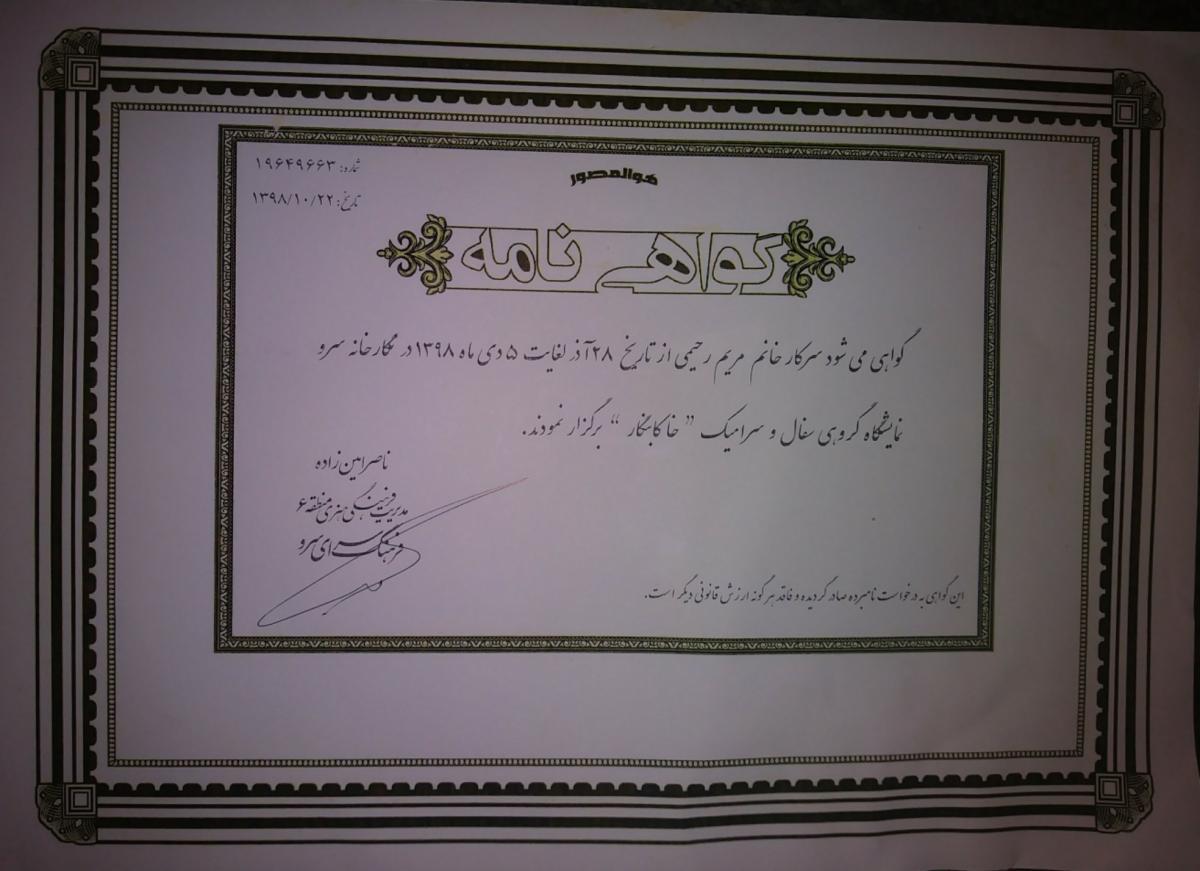 هوالمصور
شماره: ۱۹۶۴۹۶۶۳
تاریخ: ۱۳۹۸/۱۰/۲۲
گواهی نامه
گواهی می شود سرکار خانم مریم رحیمی از تاریخ ۲۸ آذر لغایت ۵ دی ماه ۱۳۹۸ در نگارخانه سرو
نمایشگاه گروهی سفال و سرامیک " خاکانگار " برگزار نمودند.
ناصر امین زاده
مدیریت فرهنگی هنری منطقه ۶
فرهنگسرای سرو
این گواهی به درخواست نامبرده صادر گردیده و فاقد هر گونه ارزش قانونی دیگر است.